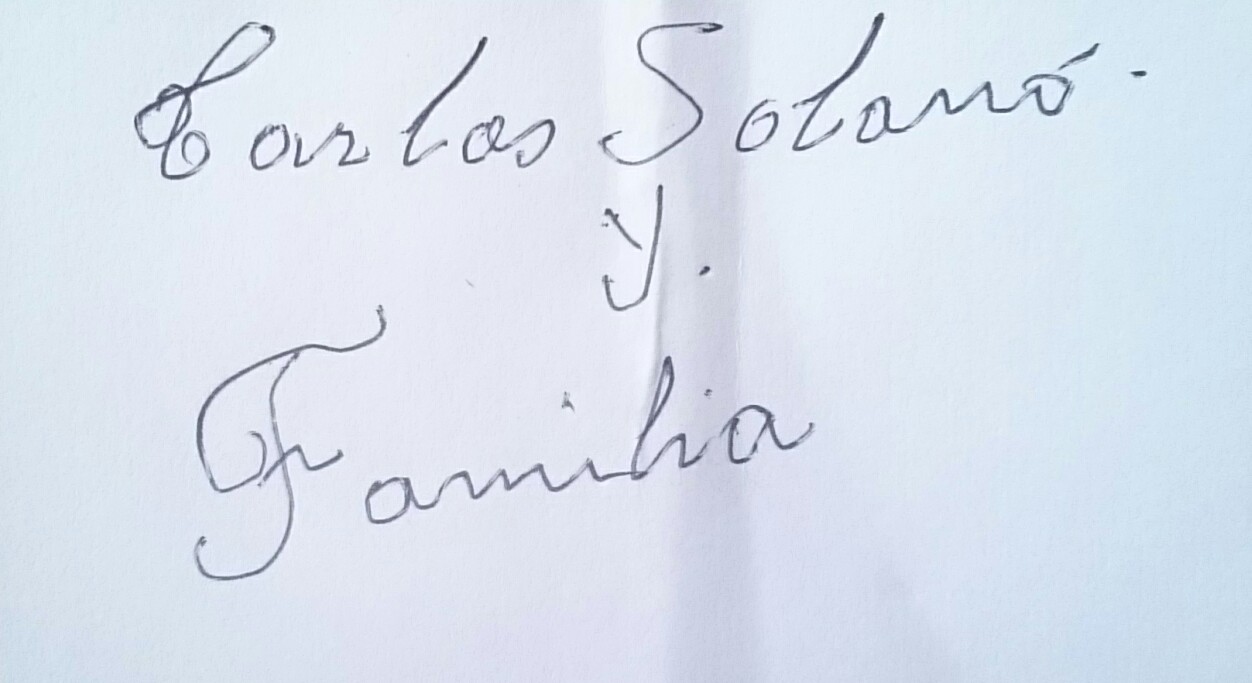 Carlos Solanó.
y.
Familia